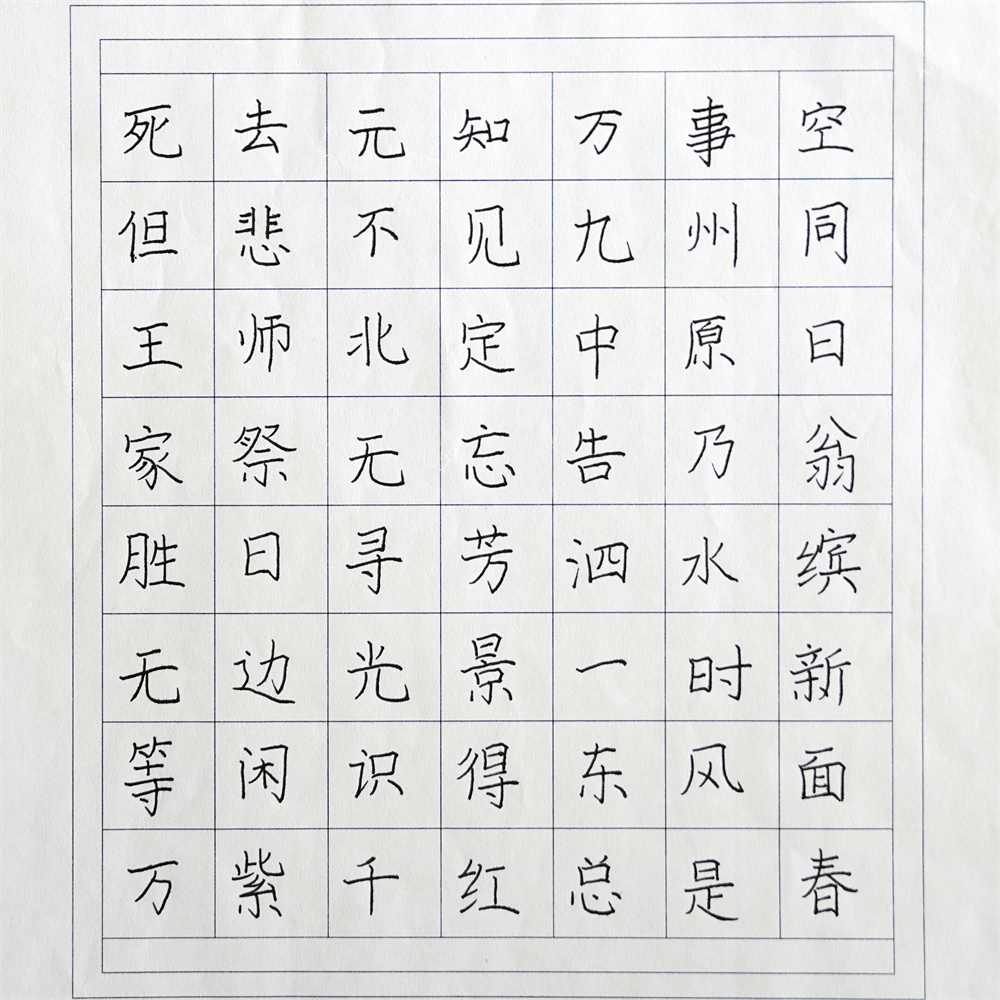 死去元知万事空
但悲不见九州同
王师北定中原日
家祭无忘告乃翁
胜日寻芳泗水缤
无边光景一时新
等闲识得东风面
万紫千红总是春